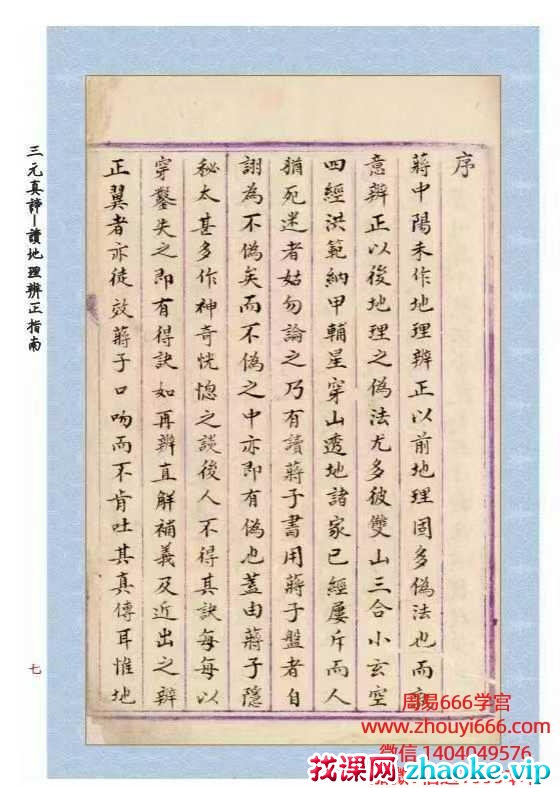 三元真諦—讀地理辨正指南
七
序
蔣中陽未作地理辨正以前地理固多偽法也而
意辨正以後地理之偽法尤多彼雙山三合小玄空
四經洪範納甲輔星穿山透地諸家已經屢斥而人
猶死迷者姑勿論之乃有讀蔣子書用蔣子盤者自
詡為不偽矣而不偽之中亦即有偽也蓋由蔣子隱
秘太甚多作神奇恍惚之談後人不得其訣每每以
穿鑿失之即有得訣如再辨直解補義及近出之辨
正翼者亦徒效蔣子口吻而不肯吐其真傳耳惟地
周易666学宫
www.zhouyi666.com
微信 1404049576
找课网 zhaoke.vip